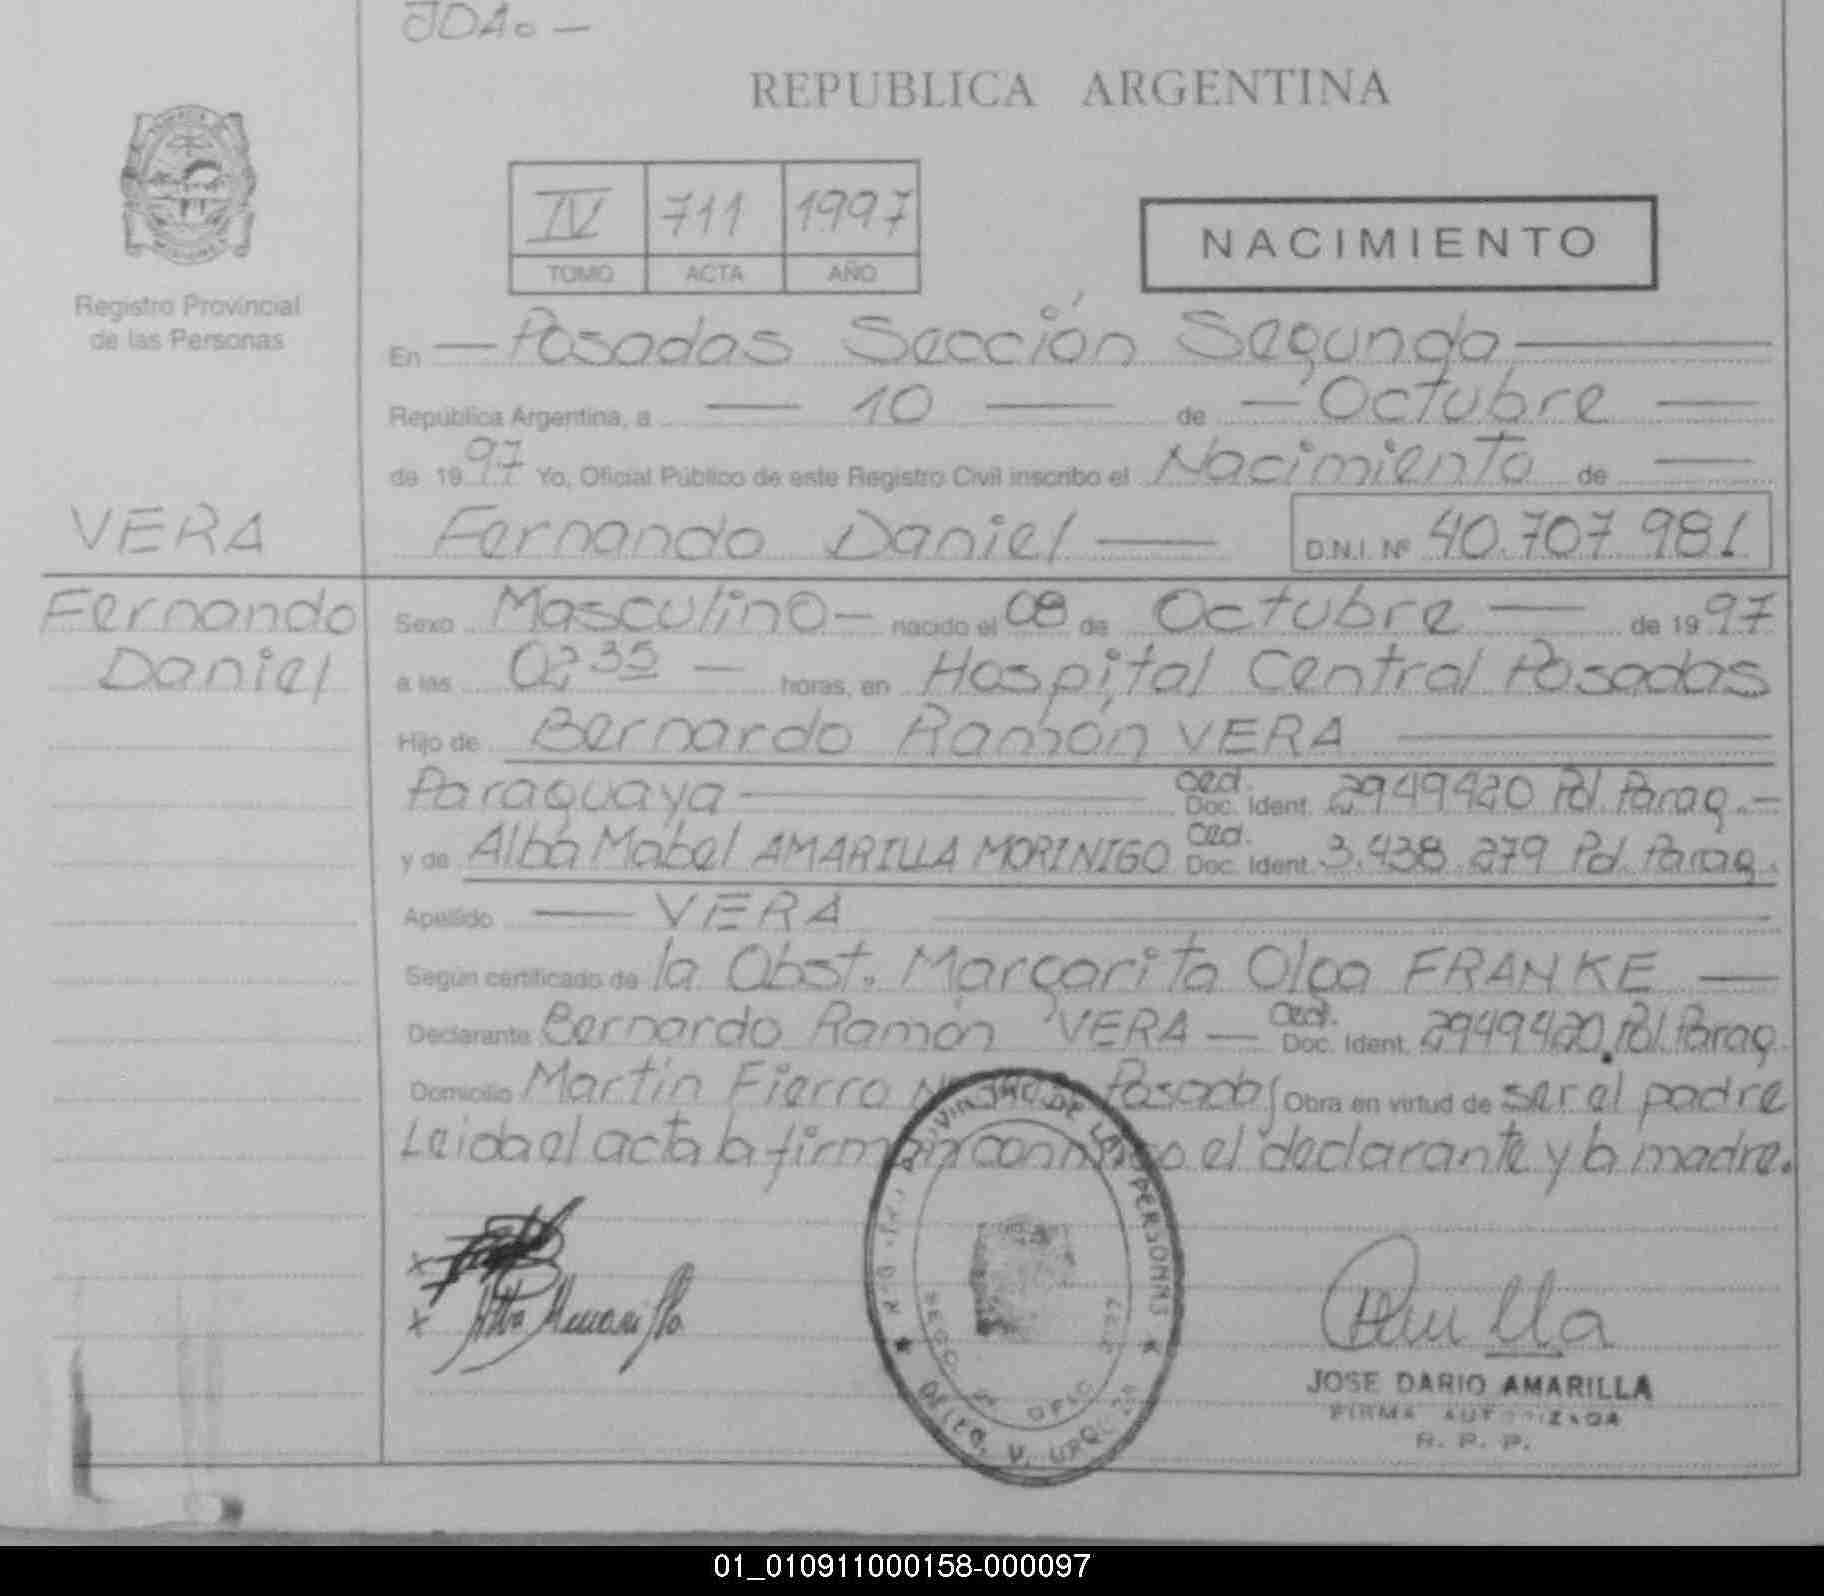 JDA. —
REPUBLICA ARGENTINA
IV 711 1997
TOMO ACTA AÑO
NACIMIENTO
Registro Provincial
de las Personas
En — Posadas Sección Segunda —
República Argentina, a — 10 — de — Octubre —
de 1997 Yo, Oficial Público de este Registro Civil inscribo el Nacimiento de —
VERA
Fernando Daniel — D.N.I. Nº 40.707.981
Fernando
Daniel
Sexo Masculino — nacido el 08 de Octubre — de 1997
a las 02,35 — horas, en Hospital Central Posadas
Hijo de Bernardo Ramón VERA —
Paraguaya — Ced. Doc. Ident. 2949420 Pol. Parag. —
y de Alba Mabel AMARILLA MORINIGO Ced. Doc. Ident. 3.438.279 Pol. Parag.
Apellido — VERA —
Según certificado de la Obst. Margarita Olga FRANKE —
Declarante Bernardo Ramón VERA — Ced. Doc. Ident. 2949420. Pol. Parag.
Domicilio Martín Fierro Posadas Obra en virtud de ser el padre
Leida el acta la firman conmigo el declarante y la madre.
x
x Alba Amarilla
DE LAS PERSONAS
OFIC
JOSE DARIO AMARILLA
FIRMA AUTORIZADA
R. P. P.
01_010911000158-000097